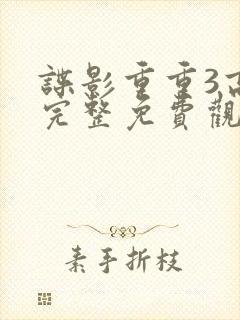 諜影重重3高
完整免費觀
素手折枝